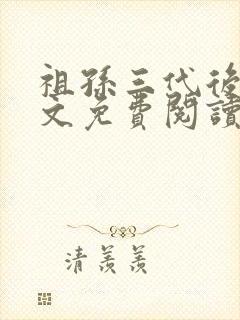 祖孫三代後
文免費閱讀
清羨羨